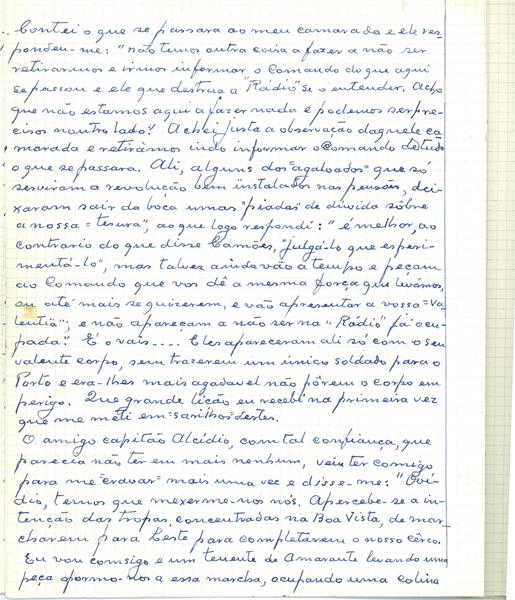 Contei o que se passara ao meu camarada e ele res-
pondeu-me: "não temos outra coisa a fazer a não ser
retirarmos e irmos informar o Comando do que aqui
se passou e ele que destrua a "Rádio" se o entender. Acho
que não estamos aqui a fazer nada e podemos ser pre-
cisos noutro lado". Achei justa a observação daquele ca-
marada e retirámos indo informar o Comando de tudo
o que se passara. Ali, alguns dos "agaloados" que só
serviram a revolução bem instalados nas pensões, dei-
xaram sair da boca umas "piadas" de dúvida sôbre
a nossa "tesura", ao que logo respondi: "é melhor, ao
contrario do que disse Camões, "julgá-lo que experi-
mentá-lo", mas talvez ainda vão a tempo e peçam
ao Comando que vos dê a mesma força que levámos,
ou até mais se quizerem, e vão apresentar a vossa "va-
lentia"; e não apareçam a não ser na "Rádio" já ocu-
pada". E o vais.... Eles apareceram ali só com o seu
valente corpo, sem trazerem um único soldado para o
Porto e era-lhes mais agadavel não pôrem o corpo em
perigo. Que grande lição eu recebi na primeira vez
que me meti em "sarilhos" destes.
O amigo capitão Alcídio, com tal confiança, que
parecia não ter em mais nenhum, veiu ter comigo
para me "cravar" mais uma vez e disse-me: "Oví-
dio, temos que mexermo-nos nós. Apercebe-se a in-
tenção das tropas, concentradas na Boa Vista, de mar-
charem para Leste para completarem o nosso cêrco.
Eu vou comsigo e um tenente de Amarante levando uma
peça opormo-nos a essa marcha, ocupando uma colina